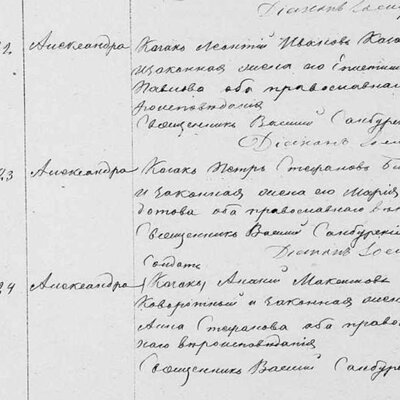 Діаконъ
Александра Козакъ Леонтій Ивановъ
и законная жена его
Павлова оба православнаго
вѣроисповѣданія
Священникъ Василій Самбурскій
Діаконъ
23 Александра Козакъ Петръ Стефановъ
и законная жена его Марія
оба православнаго
Священникъ Василій Самбурскій
Діаконъ
Солдатъ
24 Александра Козакъ Ананій Максимовъ
и законная жена
Анна Стефанова оба право
наго вѣроисповѣданія
Священникъ Василій Самбур